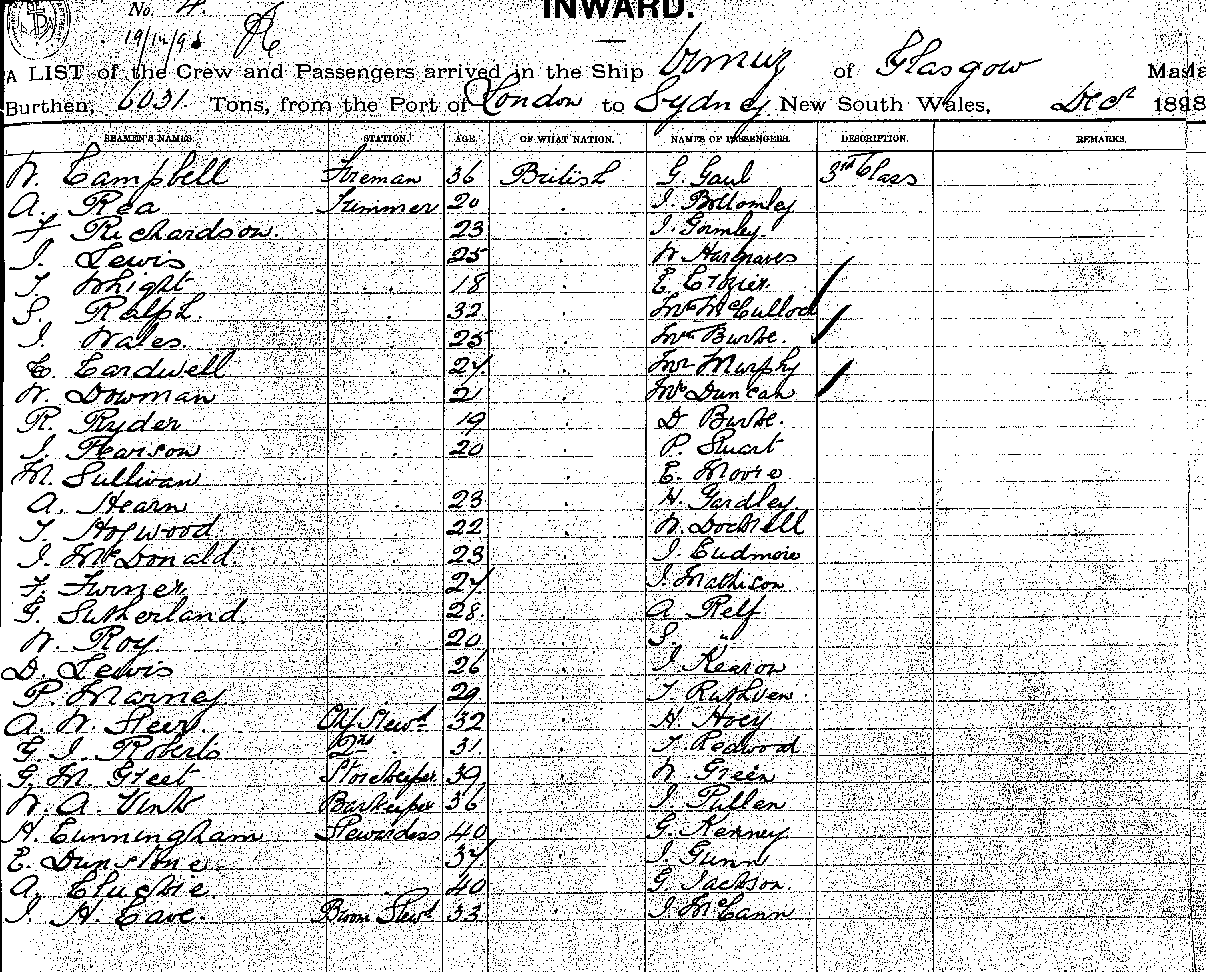 No. 4.
INWARD.
19/12/98
A LIST of the Crew and Passengers arrived in the Ship Ormuz of Glasgow Maste
Burthen, 6031. Tons, from the Port of London to Sydney New South Wales, Decr 1898
SEAMEN'S NAMES. STATION. AGE. OF WHAT NATION. NAMES OF PASSENGERS. DESCRIPTION. REMARKS.
W. Campbell Fireman 36 British G. Gaul 3rd Class
A. Rea Trimmer 20 J. Bottomley
F. Richardson 23 J. Gormley.
J. Lewis 25 W. Hargraves
T. Whight 18 E.
S. Ralph. 32 Mrs McCulloch
J. Wales. 25 Mrs Burke.
C. Cardwell 24 Mr Murphy
W. Dowman 21 Mrs Duncan
R. Ryder 19 D. Burke.
J. Pearson 20 P. Stuart
M. Sullivan E. Moore
A. Hearn 23 H. Yardley
T. Horwood 22 W. Dockrell
J. McDonald. 23 J. Cudmore
F. Turner 24 J. Mathison
G. Sutherland 28. A. Relf
W. Roy. 20 S. "
D. Lewis 26 J. Kearon
P. Marney 29 T. Ruthven.
A. W. Steer. Chf Stewd 32 H. Hoey
G. J. Roberts 31 T. Redwood
G. M. Greet Storekeeper 39 W. Green
W. A. Vink Barkeeper 36 J. Pullen
A. Cunningham Stewardess 40 G. Kenney.
E. Dunstone. 34 J. Gunn
A. Cluchie. 40 G. Jackson.
J. H. Cave. Bœom Stewd 33 J. McCann